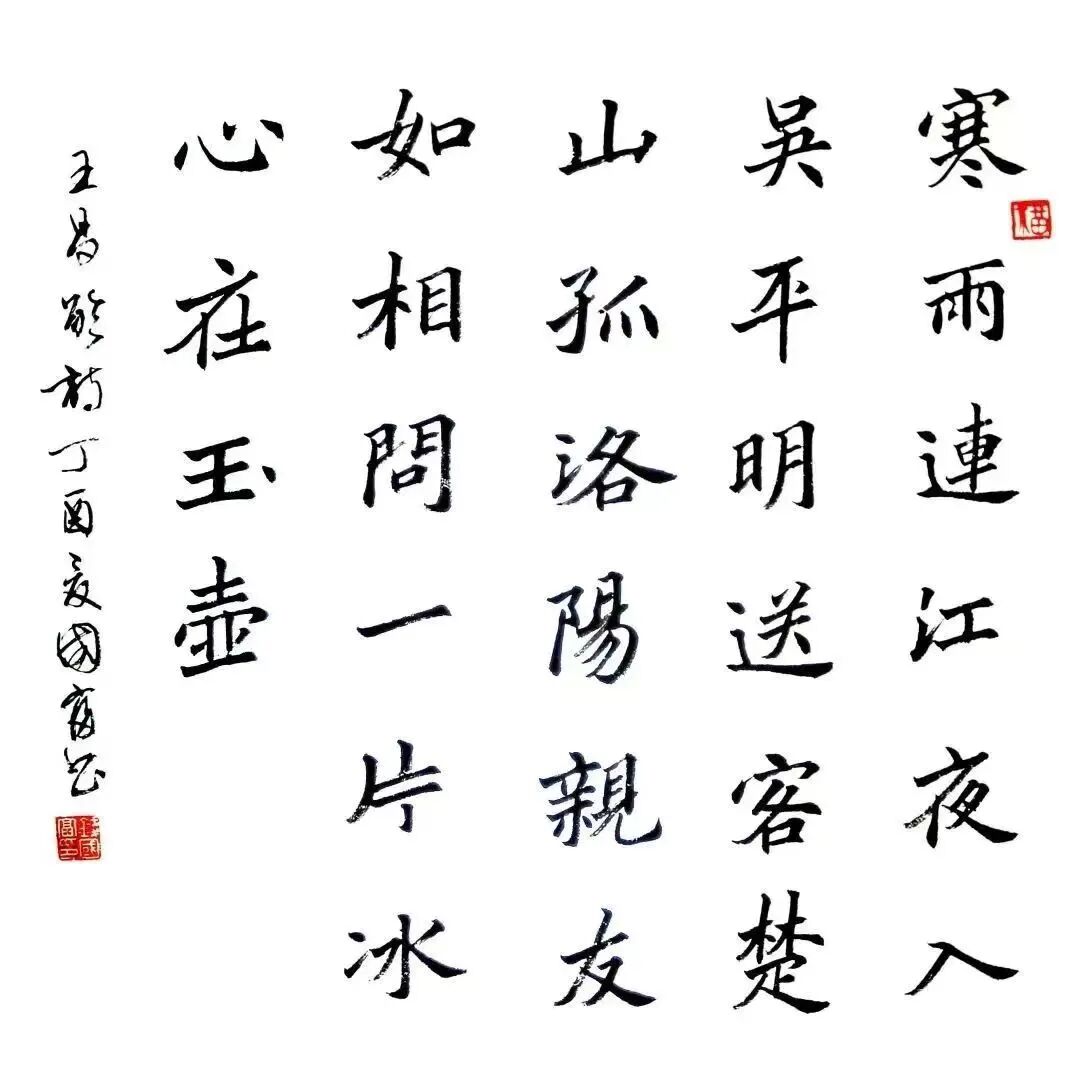 寒雨連江夜入
吳平明送客楚
山孤洛陽親友
如相問一片冰
心在玉壺
王昌齡詩丁酉夏國富書